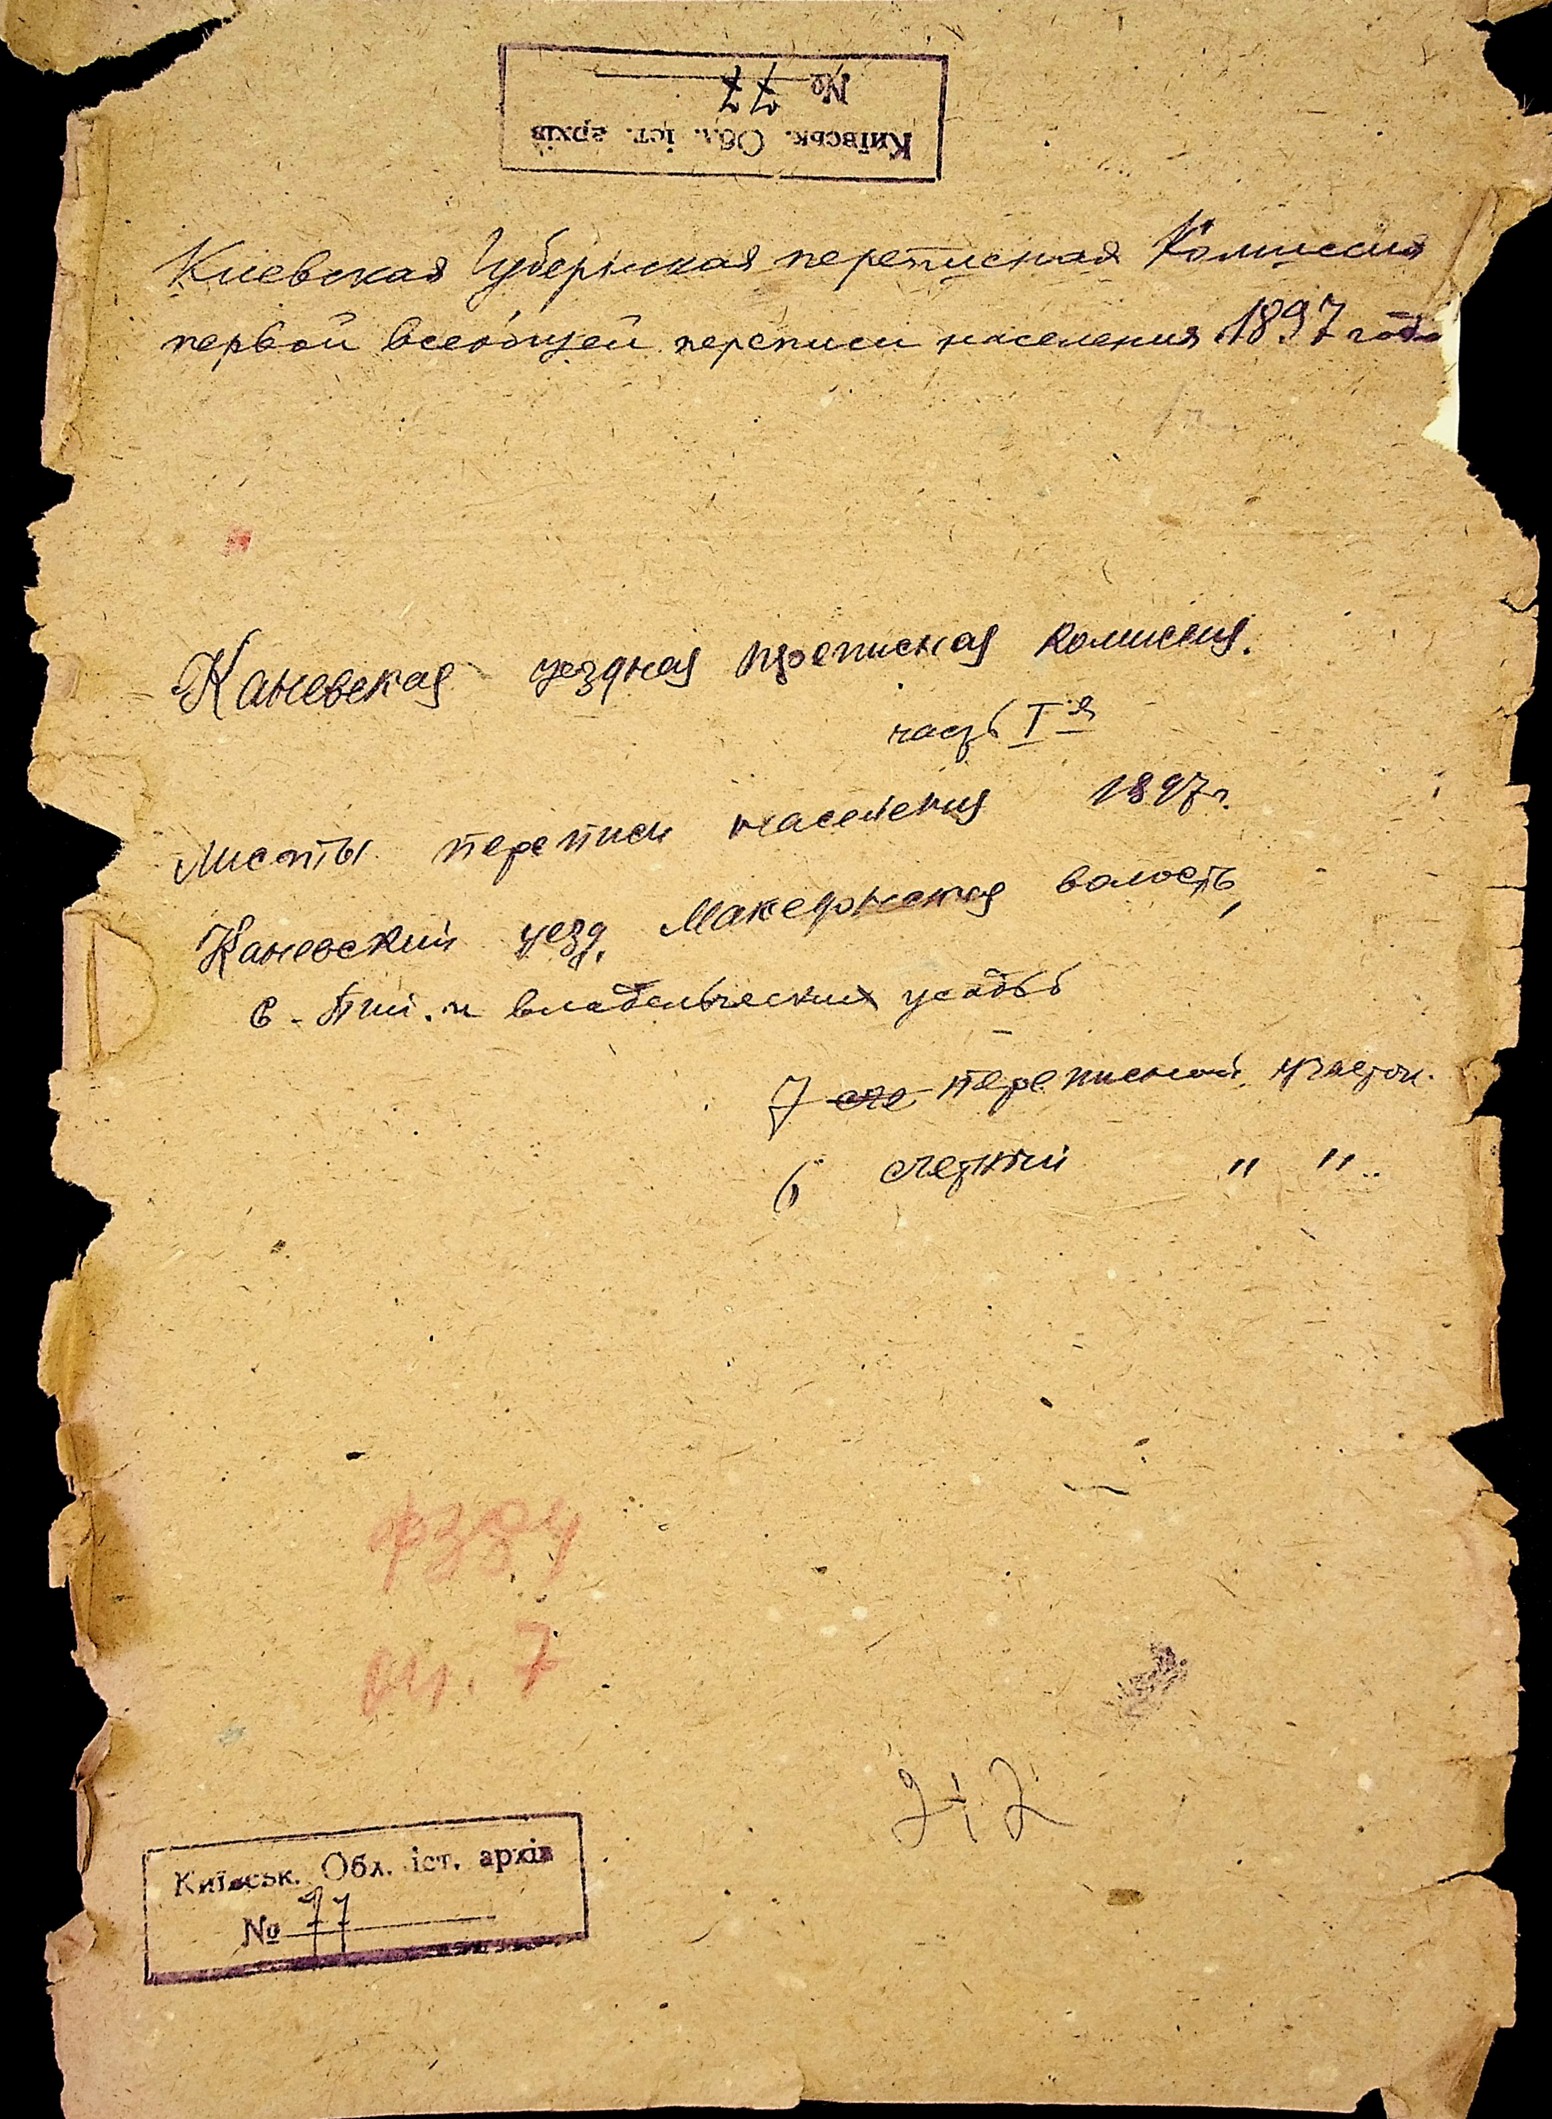 Київськ. Обл. іст. архів
№ 77
Киевская Губернская переписная Комиссия
первой всеобщей переписи населения 1897 года
Каневская уездная переписная комиссия.
часть I я
Листы переписи населения 1897 г.
Каневский уезд, Македонская волость,
С. Пии. и владельческих усадьб
7 сче переписной участок.
6 счетный " "
Ф 384
оп. 7
242
Київськ. Обл. іст. архів
№ 77